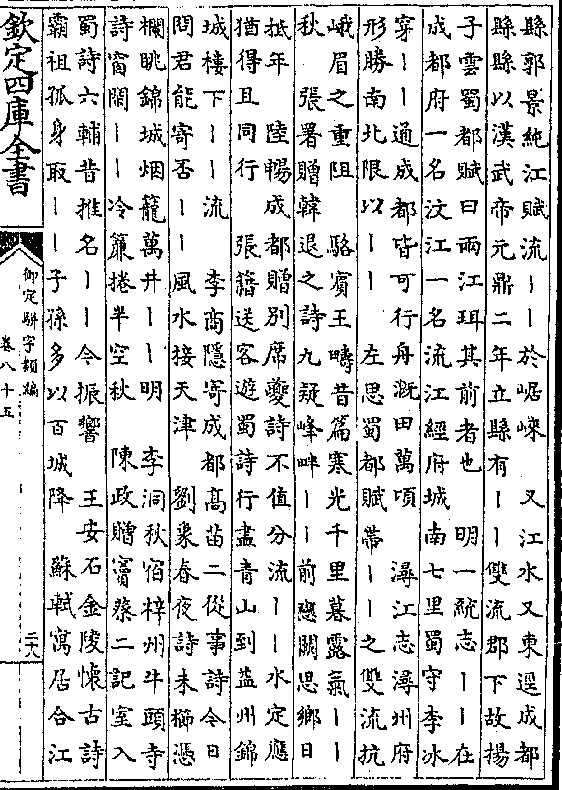 縣郭景純江賦流丨丨於崌崍 又江水又東逕成都
縣縣以漢武帝元鼎二年立縣有丨丨雙流郡下故揚
子雲蜀都賦曰兩江珥其前者也 明一統志丨丨在
成都府一名汶江一名流江經府城南七里蜀守李冰
穿丨丨通成都皆可行舟溉田萬頃 潯江志潯州府
形勝南北限以丨丨 左思蜀都賦帶丨丨之雙流抗
峨眉之重阻 駱賓王疇昔篇寒光千里暮露氣丨丨
秋 張署贈韓退之詩九疑峰畔丨丨前戀闕思鄉日
抵年 陸暢成都贈別席夔詩不值分流丨丨水定應
猶得且同行 張籍送客遊蜀詩行盡青山到益州錦
城樓下丨丨流 李商隱寄成都髙苗二從事詩今日
問君能寄否丨丨風水接天津 劉象春夜詩未櫛憑
欄眺錦城烟籠萬井丨丨明 李洞秋宿梓州牛頭寺
詩窗闊丨丨冷簾捲半空秋 陳政贈竇蔡二記室入
蜀詩六輔昔推名丨丨今振響 王安石金陵懷古詩
霸祖孤身取丨丨子孫多以百城降 蘇軾寓居合江
欽定四庫全書
御定駢字類編
卷八十五
二八